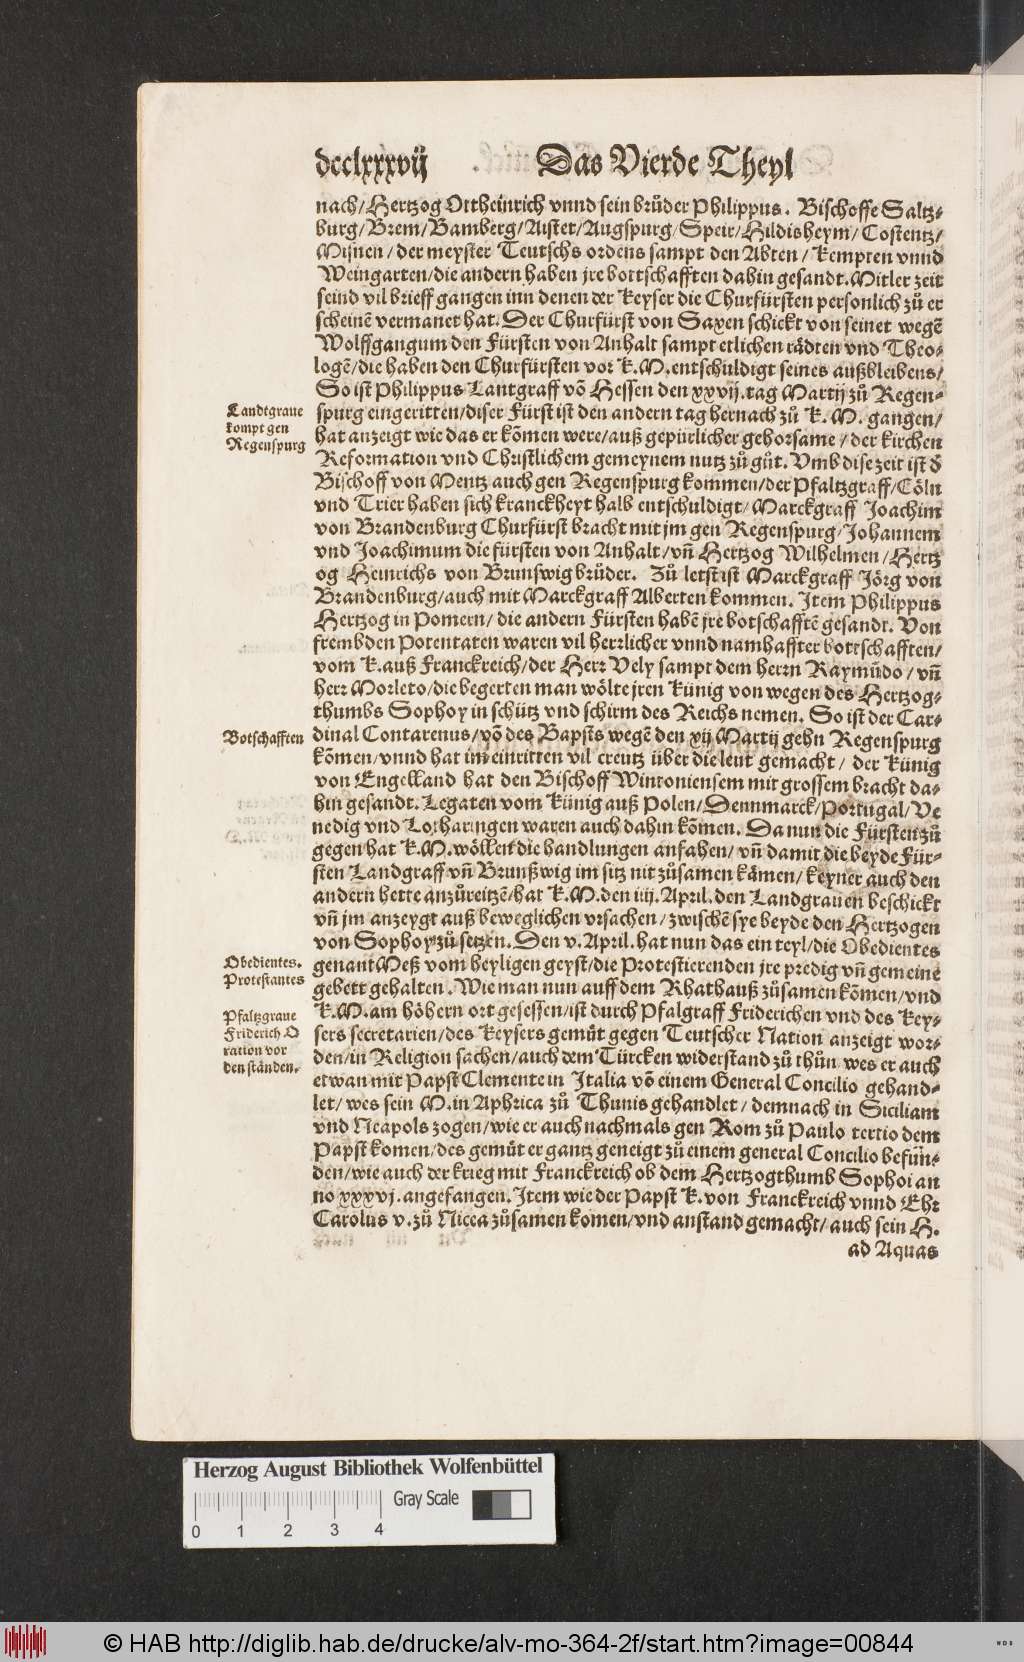 dcclxxxvij Das Vierde Theyl
nach/ Hertzog Ottheinrich vnnd sein brůder Philippus. Bischoffe Saltz-
burg/ Brem/ Bamberg/ Aistet/ Augspurg/ Speir/ Hildisheym/ Costentz/
Mijnen/ der meyster Teutschs ordens sampt den Abten/ Kempten vnnd
Weingarten/ die andern haben jre bottschafften dahin gesandt. Mitler zeit
seind vil brieff gangen inn denen der Keyser die Churfürsten personlich zů er
scheinē vermanet hat. Der Churfürst von Saxen schickt von seinet wegē
Wolffgangum den Fürsten von Anhalt sampt etlichen rädten vnd Theo-
logē/ die haben den Churfürsten vor K. M. entschuldigt seines außbleibens/
So ist Philippus Lantgraff vō Hessen den xxvij. tag Martij zů Regen-
Landtgraue
kompt gen
Regenspurg
spurg eingeritten/ diser Fürst ist den andern tag hernach zů K. M. gangen/
hat anzeigt wie das er kōmen were/ auß gepürlicher gehorsame/ der kirchen
Reformation vnd Christlichem gemeynem nutz zů gůt. Vmb dise zeit ist d̄
Bischoff von Mentz auch gen Regenspurg kommen/ der Pfaltzgraff/ Cöln
vnd Trier haben sich kranckheyt halb entschuldigt/ Marckgraff Joachim
von Brandenburg Churfürst bracht mit jm gen Regenspurg/ Johannem
vnd Joachimum die fürsten von Anhalt/ vn̄ Hertzog Wilhelmen/ Hertz
og Heinrichs von Brunswig brůder. Zů letst ist Marckgraff Jörg von
Brandenburg/ auch mit Marckgraff Alberten kommen. Item Philippus
Hertzog in Pomern/ die andern Fürsten habē jre botschafftē gesandt. Von
frembden Potentaten waren vil herrlicher vnnd namhaffter bottschafften/
vom K. auß Franckreich/ der Herr Vely sampt dem herrn Raymūdo/ vn̄
herr Morleto/ die begerten man wölte jren Künig von wegen des Hertzog-
thumbs Sophoy in schütz vnd schirm des Reichs nemen. So ist der Car-
Botschafften
dinal Contarenus/ vō des Bapsts wegē den xij Martij gehn Regenspurg
kōmen/ vnnd hat im einritten vil creutz über die leut gemacht/ der Künig
von Engelland hat den Bischoff Wintoniensem mit grossem bracht da-
hin gesandt. Legaten vom Künig auß Polen/ Dennmarck/ Portugal/ Ve
nedig vnd Lotharingen waren auch dahin kōmen. Da nun die Fürsten zů
gegen hat K. M. wöllen die handlungen anfahen/ vn̄ damit die beyde Für-
sten Landgraff vn̄ Brunßwig im sitz nit zůsamen kämen/ keyner auch den
andern hette anzůreitzē/ hat K. M. den iiij. April. den Landgrauen beschickt
vn̄ jm anzeygt auß beweglichen vrsachen/ zwischē sye beyde den Hertzogen
von Sophoy zů setzen. Den v. April. hat nun das ein teyl/ die Obedientes
Obedientes.
Protestantes
genant Meß vom heyligen geyst/ die Protestierenden jre predig vn̄ gemeine
gebett gehalten. Wie man nun auff dem Rhathauß zůsamen kōmen/ vnd
Pfaltzgraue
Friderich O
ration vor
den ständen.
K. M. am höhern ort gesessen/ ist durch Pfalgraff Friderichen vnd des Key-
sers secretarien/ des Keysers gemůt gegen Teutscher Nation anzeigt wor-
den/ in Religion sachen/ auch dem Türcken widerstand zů thůn wes er auch
etwan mit Papst Clemente in Italia vō einem General Concilio gehand-
let/ wes sein M. in Aphrica zů Thunis gehandlet/ demnach in Siciliam
vnd Neapols zogen/ wie er auch nachmals gen Rom zů Paulo tertio dem
Papst komen/ des gemůt er gantz geneigt zů einem general Concilio befūn-
den/ wie auch der krieg mit Franckreich ob dem Hertzogthumb Sophoi an
no xxxvj. angefangen. Item wie der Papst K. von Franckreich vnnd Ehr
Carolus v. zů Nicea zůsamen komen/ vnd anstand gemacht/ auch sein H.
ad Aquas
Herzog August Bibliothek Wolfenbüttel
Gray Scale
0 1 2 3 4
© HAB http://diglib.hab.de/drucke/alv-mo-364-2f/start.htm?image=00844